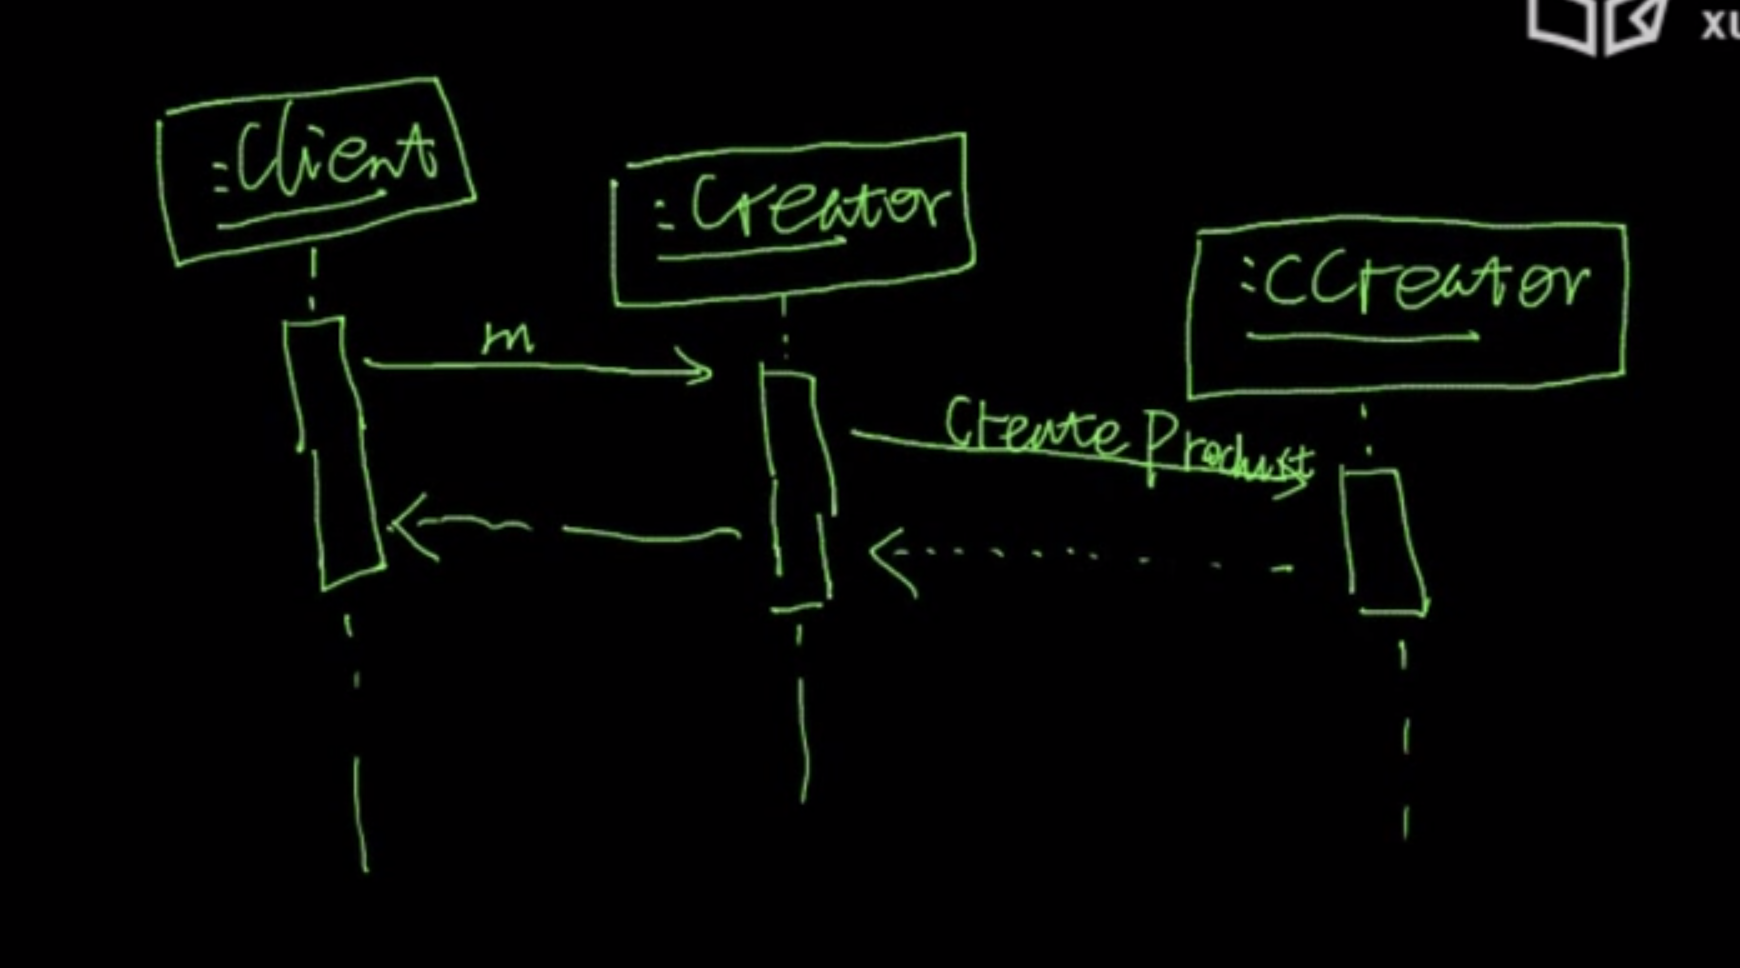 :Client
:Creator
:CCreator
m
Create Product